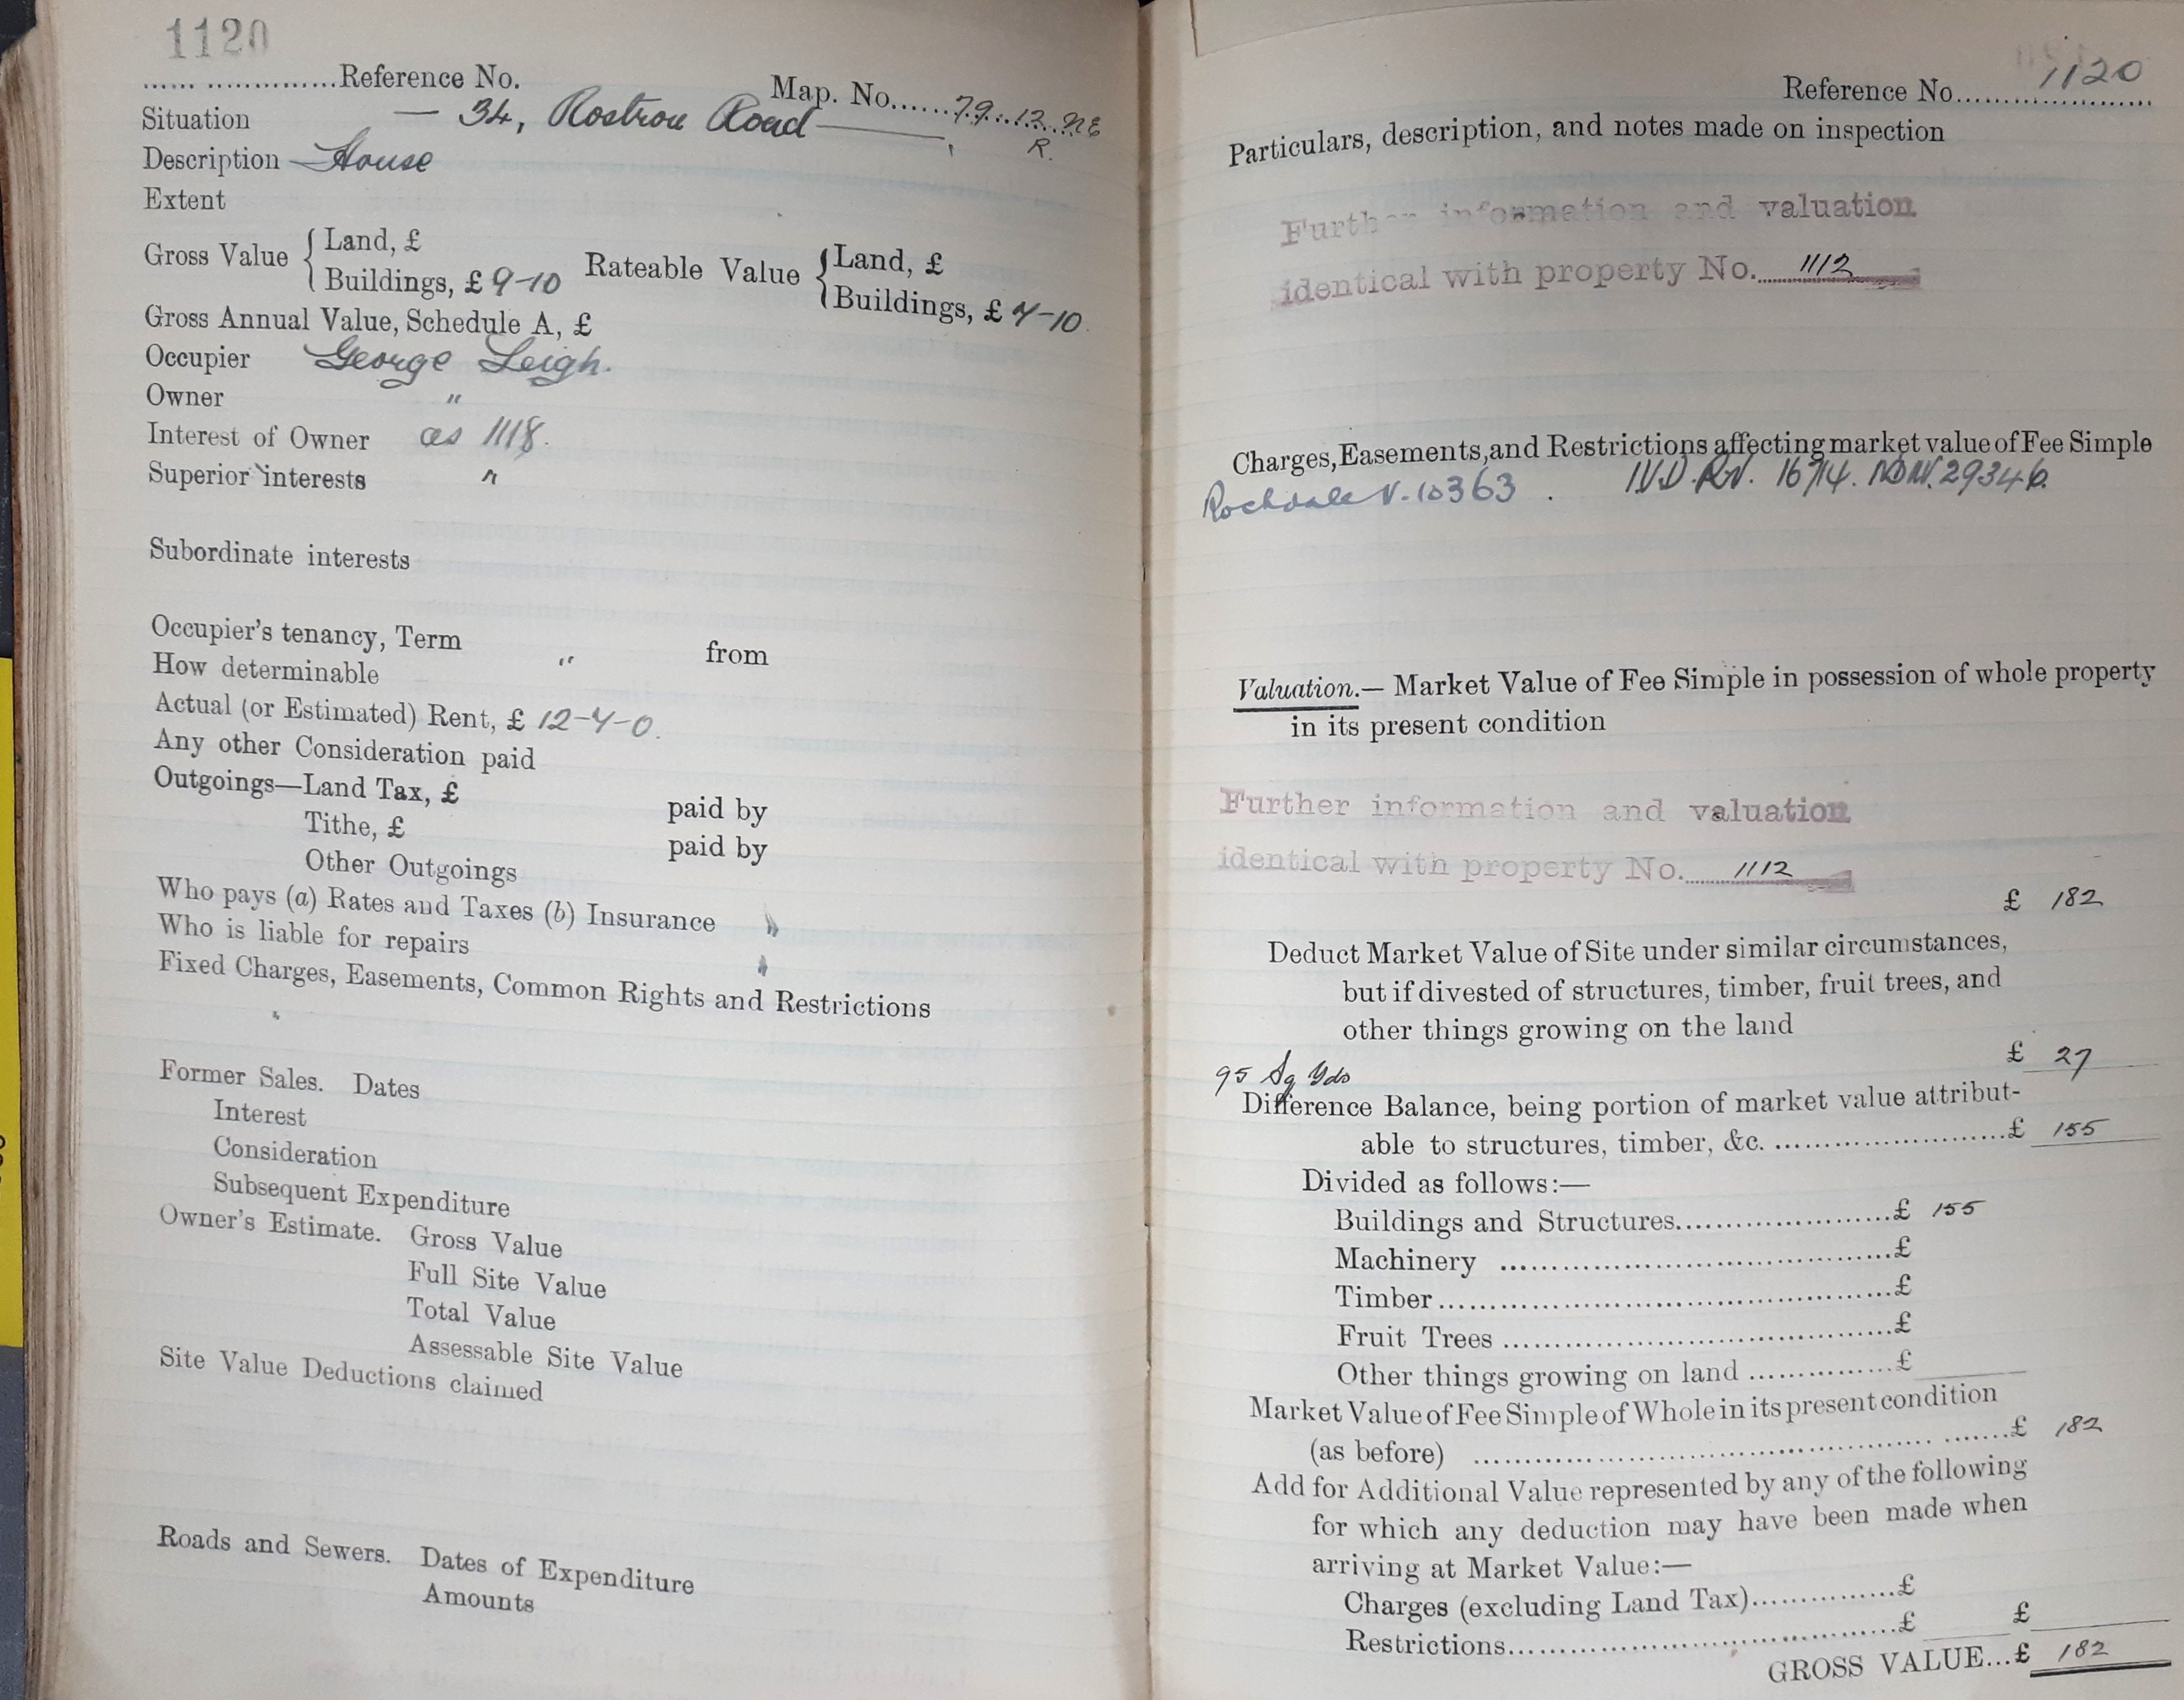 1120
Reference No. Map. No. 79.12.NE
R.
Situation — 34, Rostron Road
Description House
Extent
Gross Value { Land, £
Buildings, £ 9-10
Rateable Value { Land, £
Buildings, £ 7-10
Gross Annual Value, Schedule A, £
Occupier George Leigh.
Owner "
Interest of Owner as 1118.
Superior interests "
Subordinate interests
Occupier's tenancy, Term " from
How determinable
Actual (or Estimated) Rent, £ 12-7-0.
Any other Consideration paid
Outgoings—Land Tax, £ paid by
Tithe, £ paid by
Other Outgoings
Who pays (a) Rates and Taxes (b) Insurance "
Who is liable for repairs "
Fixed Charges, Easements, Common Rights and Restrictions
Former Sales. Dates
Interest
Consideration
Subsequent Expenditure
Owner's Estimate. Gross Value
Full Site Value
Total Value
Assessable Site Value
Site Value Deductions claimed
Roads and Sewers. Dates of Expenditure
Amounts
Reference No. 1120
Particulars, description, and notes made on inspection
Further information and valuation
identical with property No. 1112
Charges, Easements, and Restrictions affecting market value of Fee Simple
Rochdale V. 10363. 29346.
Valuation.— Market Value of Fee Simple in possession of whole property
in its present condition
Further information and valuation
identical with property No. 1112
£ 182
Deduct Market Value of Site under similar circumstances,
but if divested of structures, timber, fruit trees, and
other things growing on the land
£ 27
95 Sq Yds
Difference Balance, being portion of market value attribut-
able to structures, timber, &c. £ 155
Divided as follows:—
Buildings and Structures £ 155
Machinery £
Timber £
Fruit Trees £
Other things growing on land £
Market Value of Fee Simple of Whole in its present condition
(as before) £ 182
Add for Additional Value represented by any of the following
for which any deduction may have been made when
arriving at Market Value:—
Charges (excluding Land Tax) £
Restrictions £ £
GROSS VALUE...£ 182